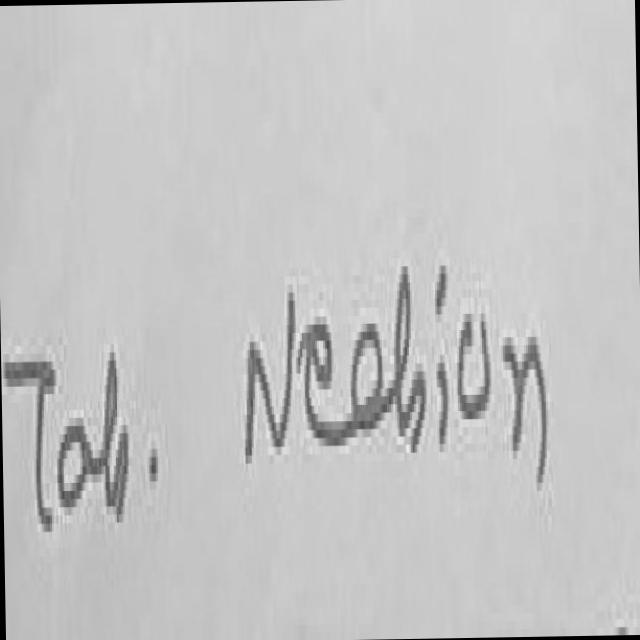 Tab. Nebion